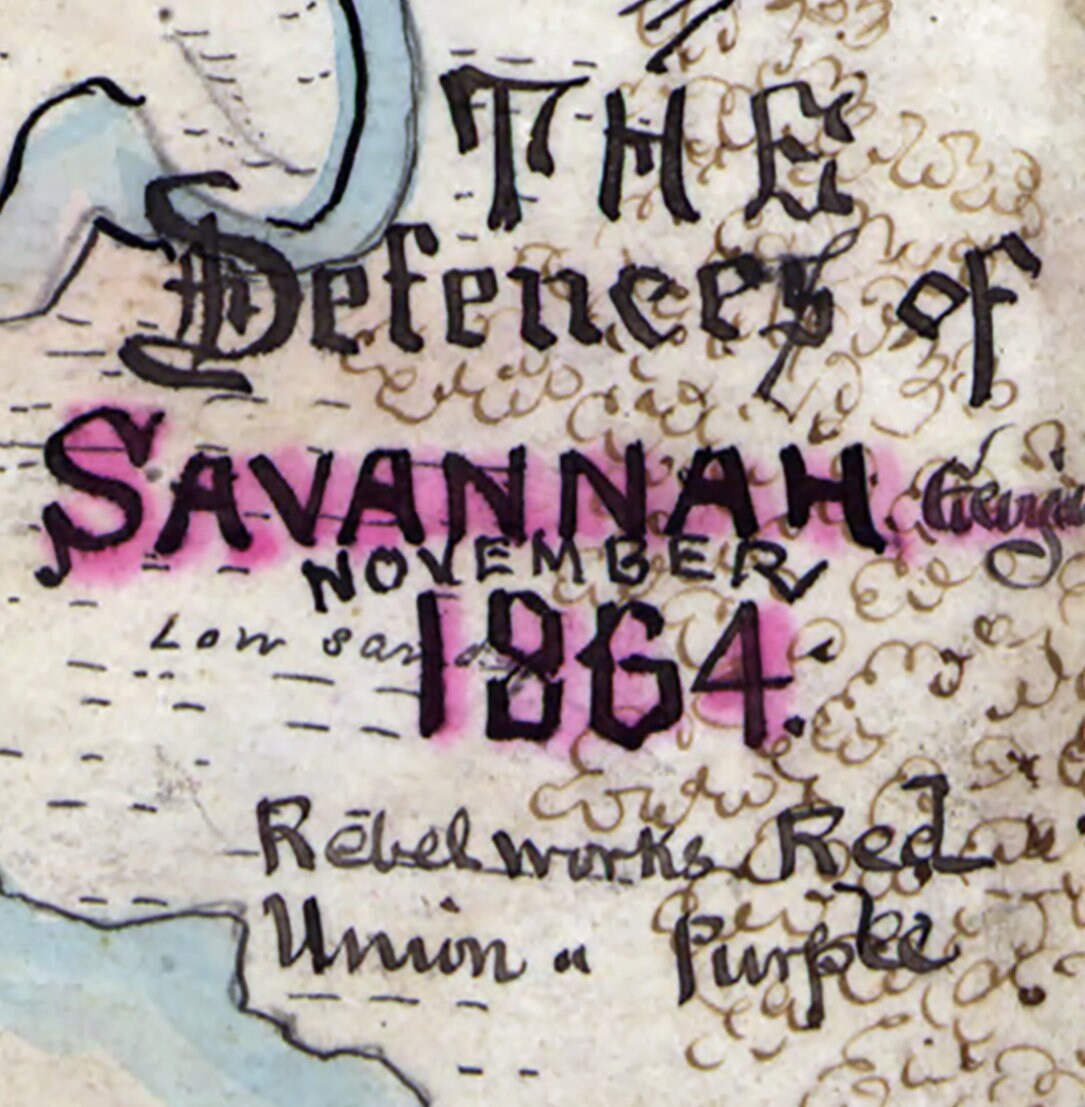 THE
Defences of
SAVANNAH. Georgia
NOVEMBER
1864.
Low sand
Rebel works Red
Union " Purple